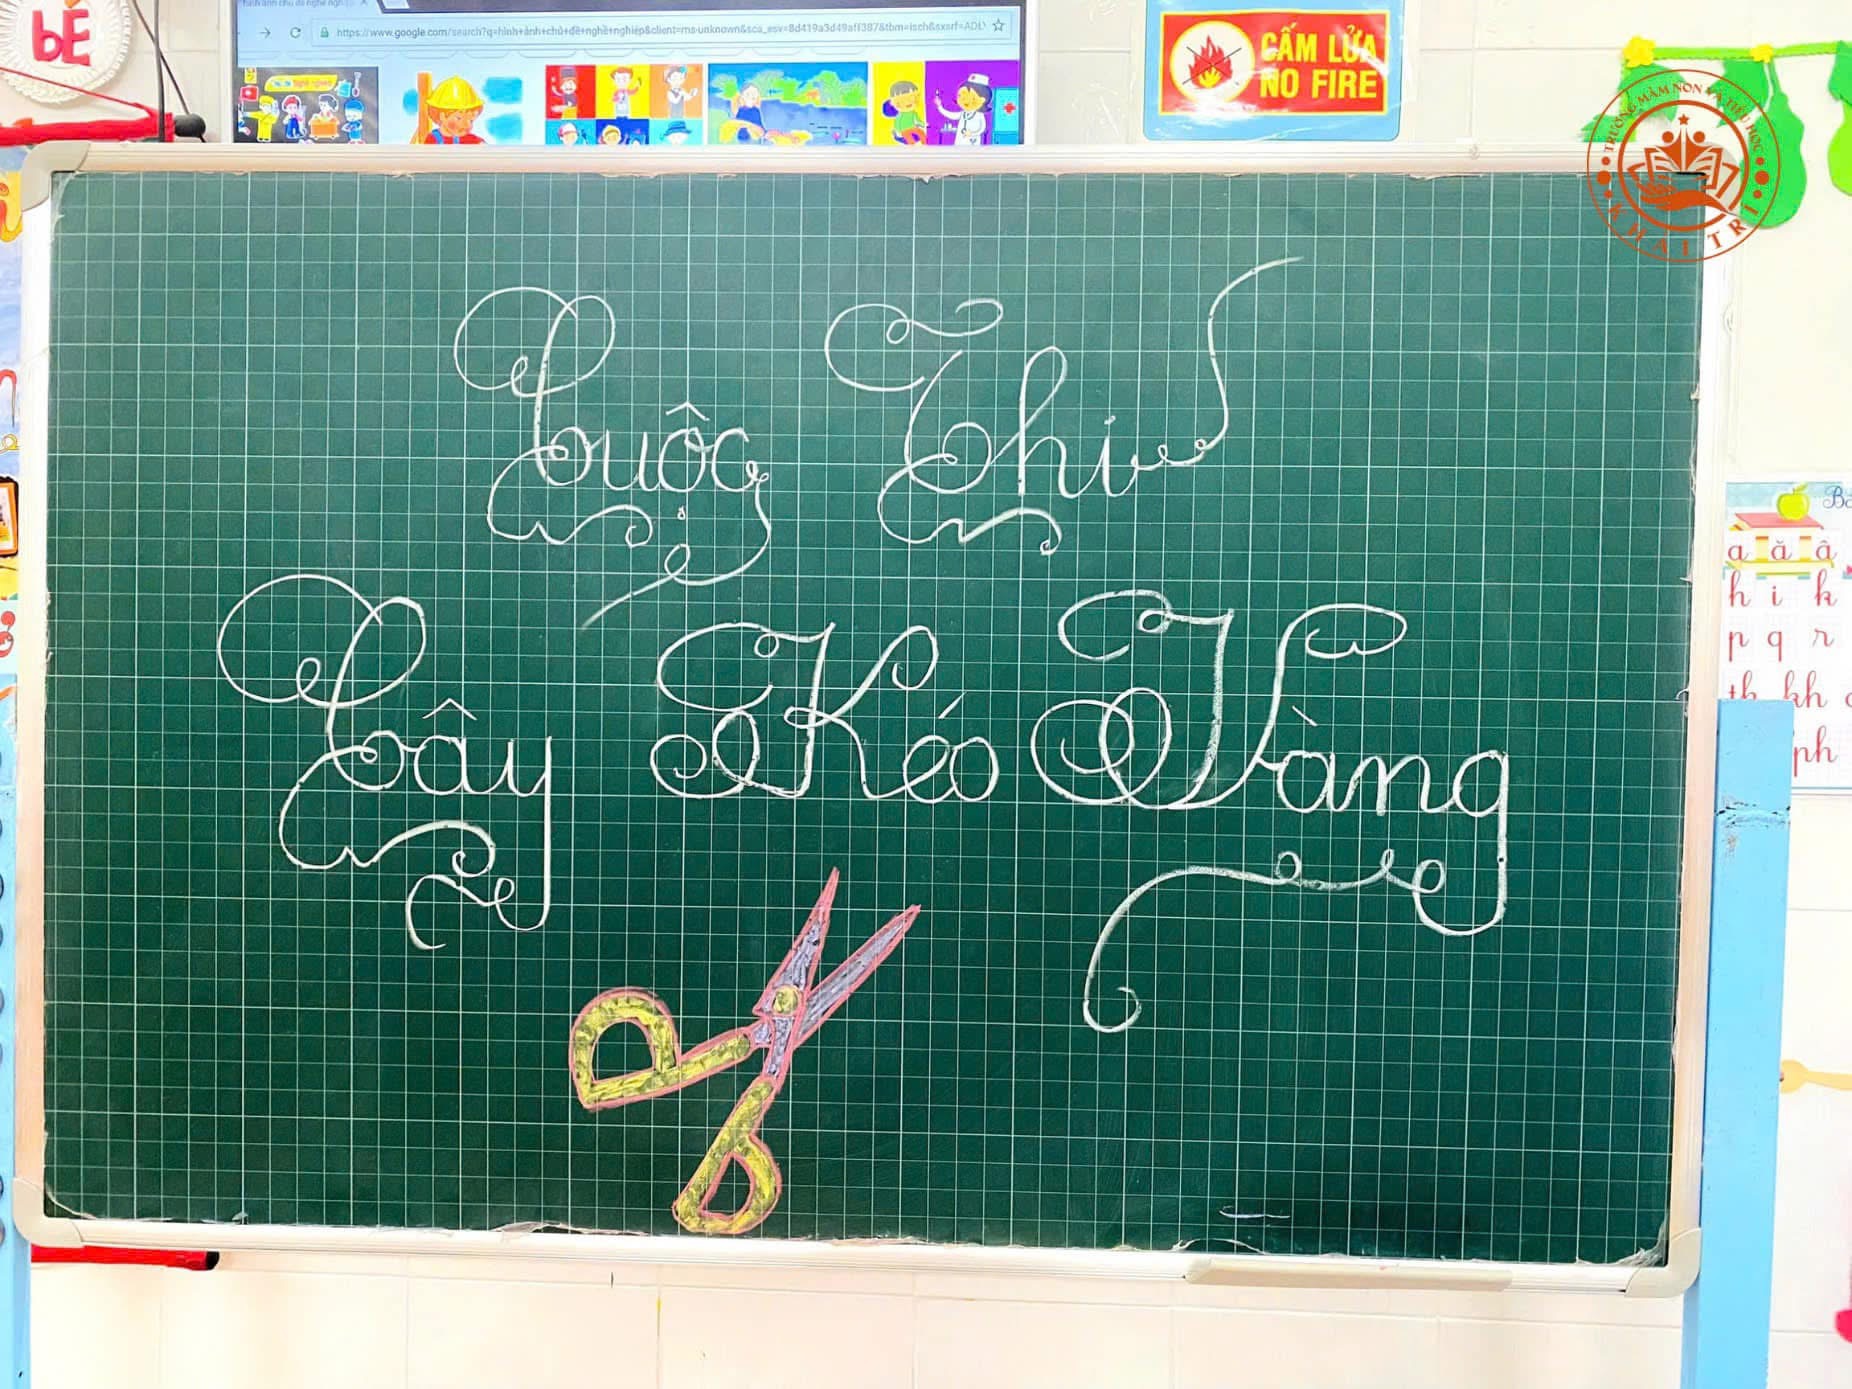 BÉ
https://www.google.com/search?q=hình+ảnh+chủ+đề+nghề+nghiệp&client=ms-unknown&sca_esv=8d419a3d49aff387&tbm=isch&sxsrf=ADL
CẤM LỬA
NO FIRE
TRƯỜNG MẦM NON VÀ TIỂU HỌC
KHAI TRÍ
Cuộc Thi
Cây Kéo Vàng
a ă â
h i k
p q r
th kh
ph